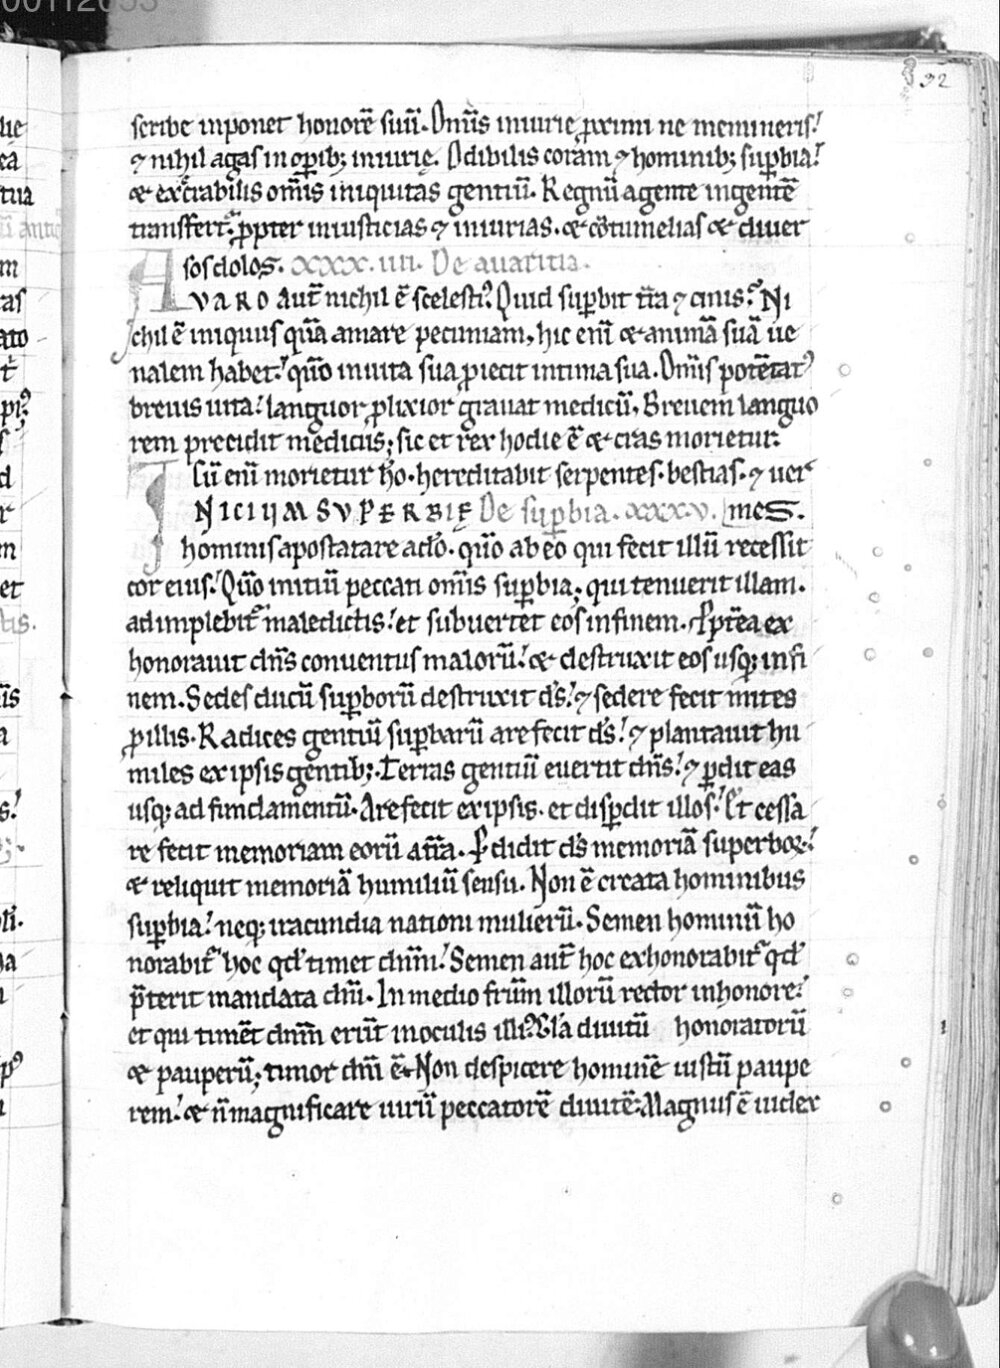 00112653
92
scribe inponet honorē suū. Om̄is iniurie ꝓximi ne memineris!
⁊ nihil agas in oꝑib; iniurię. Odibilis coram ⁊ hominib; suꝑbia!
& execrabilis om̄is iniquitas gentiū. Regnū a gente in gentē
transfert᷑. ꝓpter iniusticias ⁊ iniurias. & cōtumelias & diuer
sos dolos. xxx.iiii. De auaritia.
AVARO aut̄ nichil ē scelesti? Quid suꝑbit t̄ra ⁊ cinis? Ni
chil ē iniquius quā amare pecuniam, hic eni̅ & animā suā ue
nalem habet! qm̄o in uita sua ꝓiecit intima sua. Om̄is potētatꝰ
breuis uita! languor ꝓlixior grauat medicū, Breuem languo
rem precidit medicus; sic et rex hodie ē & cras morietur.
Cū eni̅ morietur hō. hereditabit serpentes. bestias. ⁊ uer
INICIUM SVPERBIĘ De suꝑbia. xxxv. mes.
hominis apostatare a dō. qūo ab eo qui fecit illū recessit
cor eius! Qūo initiū peccati om̄is suꝑbia; qui tenuerit illam.
adimplebit᷑ maledictis! et subuertet eos in finem. Ꝓpt̄ea ex
honorauit dn̄s conuentus malorū! & destruxit eos usq; in fi
nem. Sedes ducū suꝑborū destruxit d̄s! ⁊ sedere fecit mites
ꝓ illis. Radices gentiū suꝑbarū arefecit d̄s! ⁊ plantauit hu
miles ex ipsis gentib;. Terras gentiū euertit dn̄s! ⁊ ꝑdit eas
usq; ad fundamentū. Arefecit ex ipsis. et disꝑdit illos! Et cessa
re fecit memoriam eorū a t̄ra. Ꝑdidit d̄s memoriā superboꝝ!
& reliquit memoriā humiliū sensu. Non ē creata hominibus
suꝑbia! neq; iracundia nationi mulierū. Semen hominū ho
norabit᷑ hoc qd̄ timet dn̄m! Semen aut̄ hoc exhonorabit᷑ qd̄
p̄terit mandata dn̄i. In medio fr̄um illorū rector in honore!
et qui timēt dn̄m erūt in oculis illiꝰ Gl̄a diuitū honoratorū
& pauperū; timor dn̄i ē. Non despicere hominē iustū paupe
rem! & n̄ magnificare uirū peccatorē diuitē. Magnus ē iudex